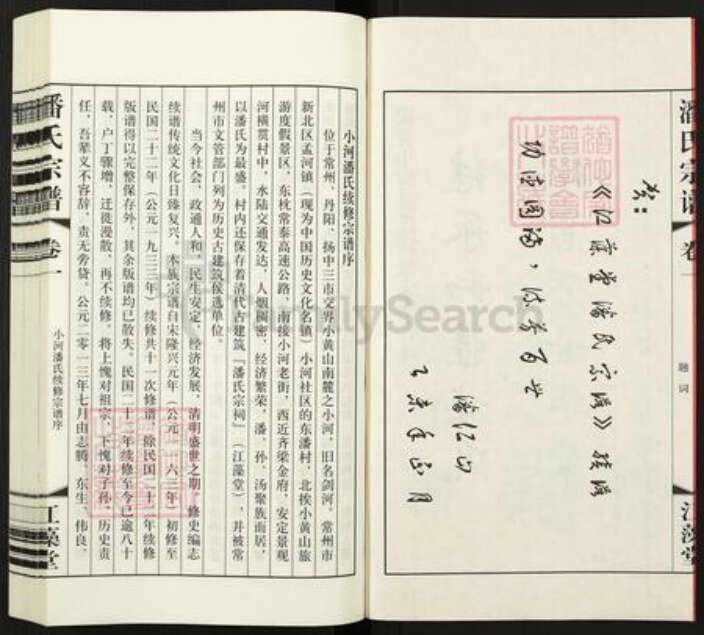 潘氏宗谱 卷一
题词
江藻堂
贺：
《江藻堂潘氏宗谱》续谱
功德圆满，流芳百世
潘仁山
小河潘氏续修宗谱序
位于常州、丹阳、扬中三市交界小黄山南麓之小河，旧名剑河。常州市
新北区孟河镇（现为中国历史文化名镇）小河社区的东潘村，北挨小黄山旅
游度假景区，东枕常泰高速公路，南接小河老街，西近齐梁金府，安定景观
河横贯村中，水陆交通发达，人烟稠密，经济繁荣，潘、孙、汤聚族而居，
以潘氏为最盛。村内还保存着清代古建筑『潘氏宗祠』（江藻堂），并被常
州市文管部门列为历史古建筑候选单位。
当今社会，政通人和，民生安定，经济发展，清明盛世之期，修史编志
续谱传统文化日臻复兴。本族宗谱自宋隆兴元年（公元一一六三年）初修至
民国二十二年（公元一九三三年）续修共十一次修谱，除民国二十二年续修
版谱得以完整保存外，其余版谱均已散失。民国二十二年续修至今已逾八十
载，户丁骤增，迁徙漫散，再不续修，将上愧对祖宗，下愧对子孙，历史责
任，吾辈义不容辞，责无旁贷。公元二零一三年七月由志腾、东生、伟良、
潘氏宗谱 卷一
小河潘氏续修宗谱序
江藻堂
FamilySearch